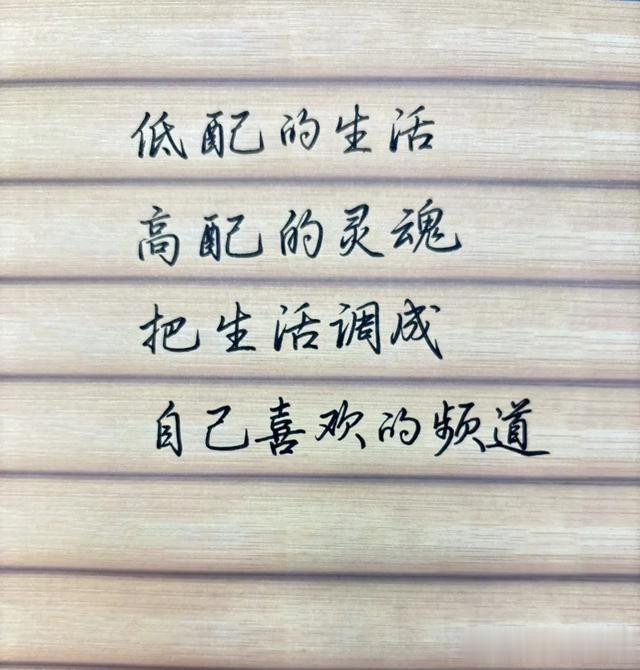 低配的生活
高配的灵魂
把生活调成
自己喜欢的频道